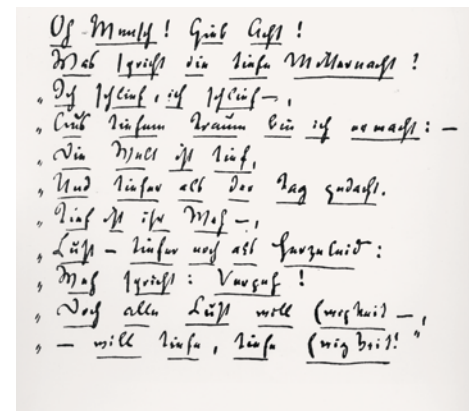 Oh Mensch! Gieb Acht!
Was spricht die tiefe Mitternacht?
„Ich schlief, ich schlief —,
„Aus tiefem Traum bin ich erwacht: —
„Die Welt ist tief,
„Und tiefer als der Tag gedacht.
„Tief ist ihr Weh —,
„Lust — tiefer noch als Herzeleid:
„Weh spricht: Vergeh!
„Doch alle Lust will Ewigkeit —,
„— will tiefe, tiefe Ewigkeit!"